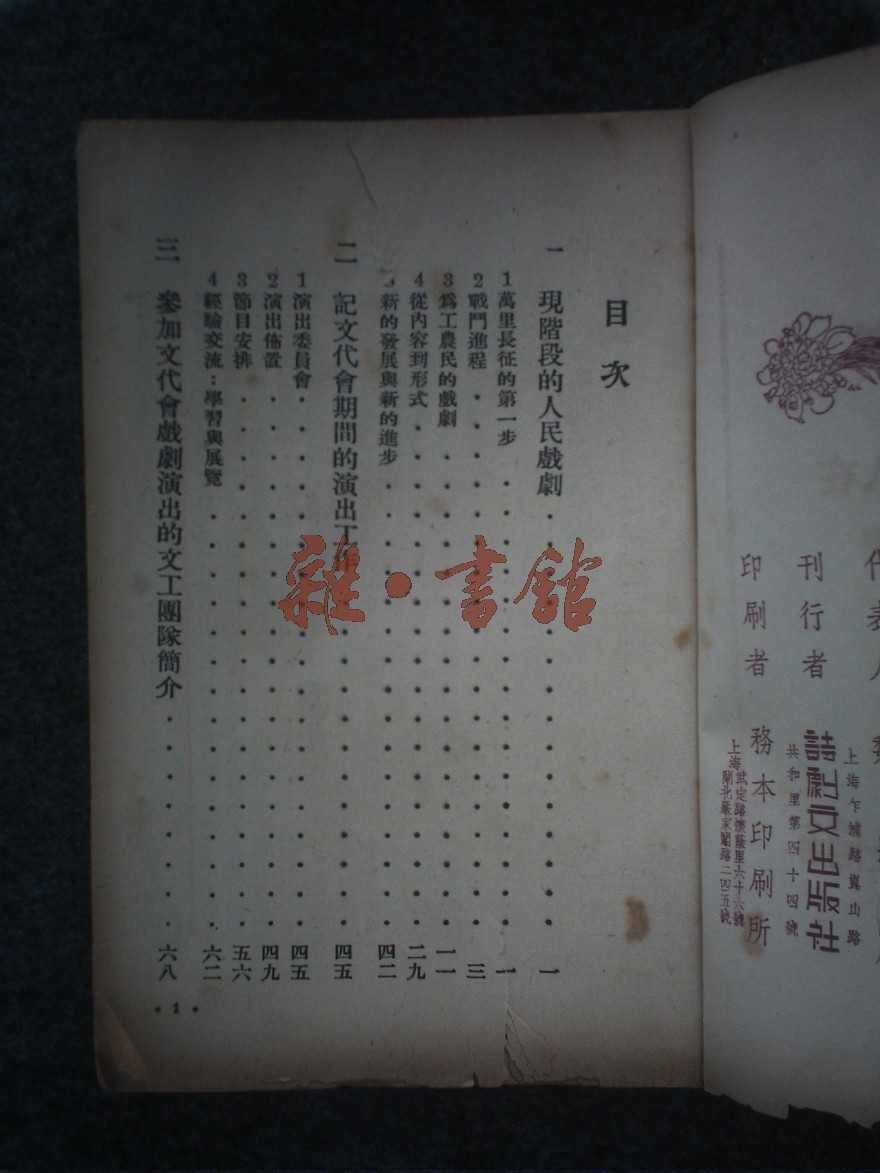 目次
一 現階段的人民戲劇・・・・・・・・・・・・・・一
1 萬里長征的第一步・・・・・・・・・・・・・・一
2 戰鬥進程・・・・・・・・・・・・・・・・・・三
3 爲工農民的戲劇・・・・・・・・・・・・・・・一一
4 從內容到形式・・・・・・・・・・・・・・・・二九
5 新的發展與新的進步・・・・・・・・・・・・・四二
二 記文代會期間的演出工作・・・・・・・・・・・四五
1 演出委員會・・・・・・・・・・・・・・・・・四五
2 演出佈置・・・・・・・・・・・・・・・・・・四九
3 節目安排・・・・・・・・・・・・・・・・・・五六
4 經驗交流：學習與展覽・・・・・・・・・・・・六二
三 參加文代會戲劇演出的文工團隊簡介・・・・・・六八
・1・
雜・書館
代表人
上海乍浦路崑山路
刊行者 詩劇文出版社
共和里第四十四號
印刷者 務本印刷所
上海武定路懷蔭里六十六號
閘北嚴家閣路二四五號